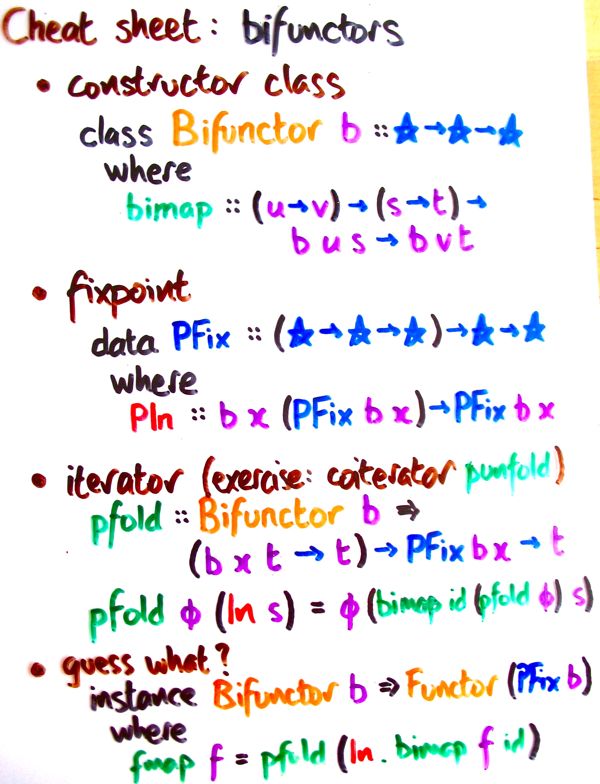 Cheat sheet: bifunctors
• constructor class
class Bifunctor b :: ☆→☆→☆
where
bimap :: (u→v)→(s→t)→
b u s → b v t
• fixpoint
data PFix :: (☆→☆→☆)→☆→☆
where
PIn :: b x (PFix b x)→PFix b x
• iterator (exercise: coiterator punfold)
pfold :: Bifunctor b ⇒
(b x t → t)→PFix b x → t
pfold ϕ (In s) = ϕ (bimap id (pfold ϕ) s)
• guess what?
instance Bifunctor b ⇒ Functor (PFix b)
where
fmap f = pfold (In . bimap f id)